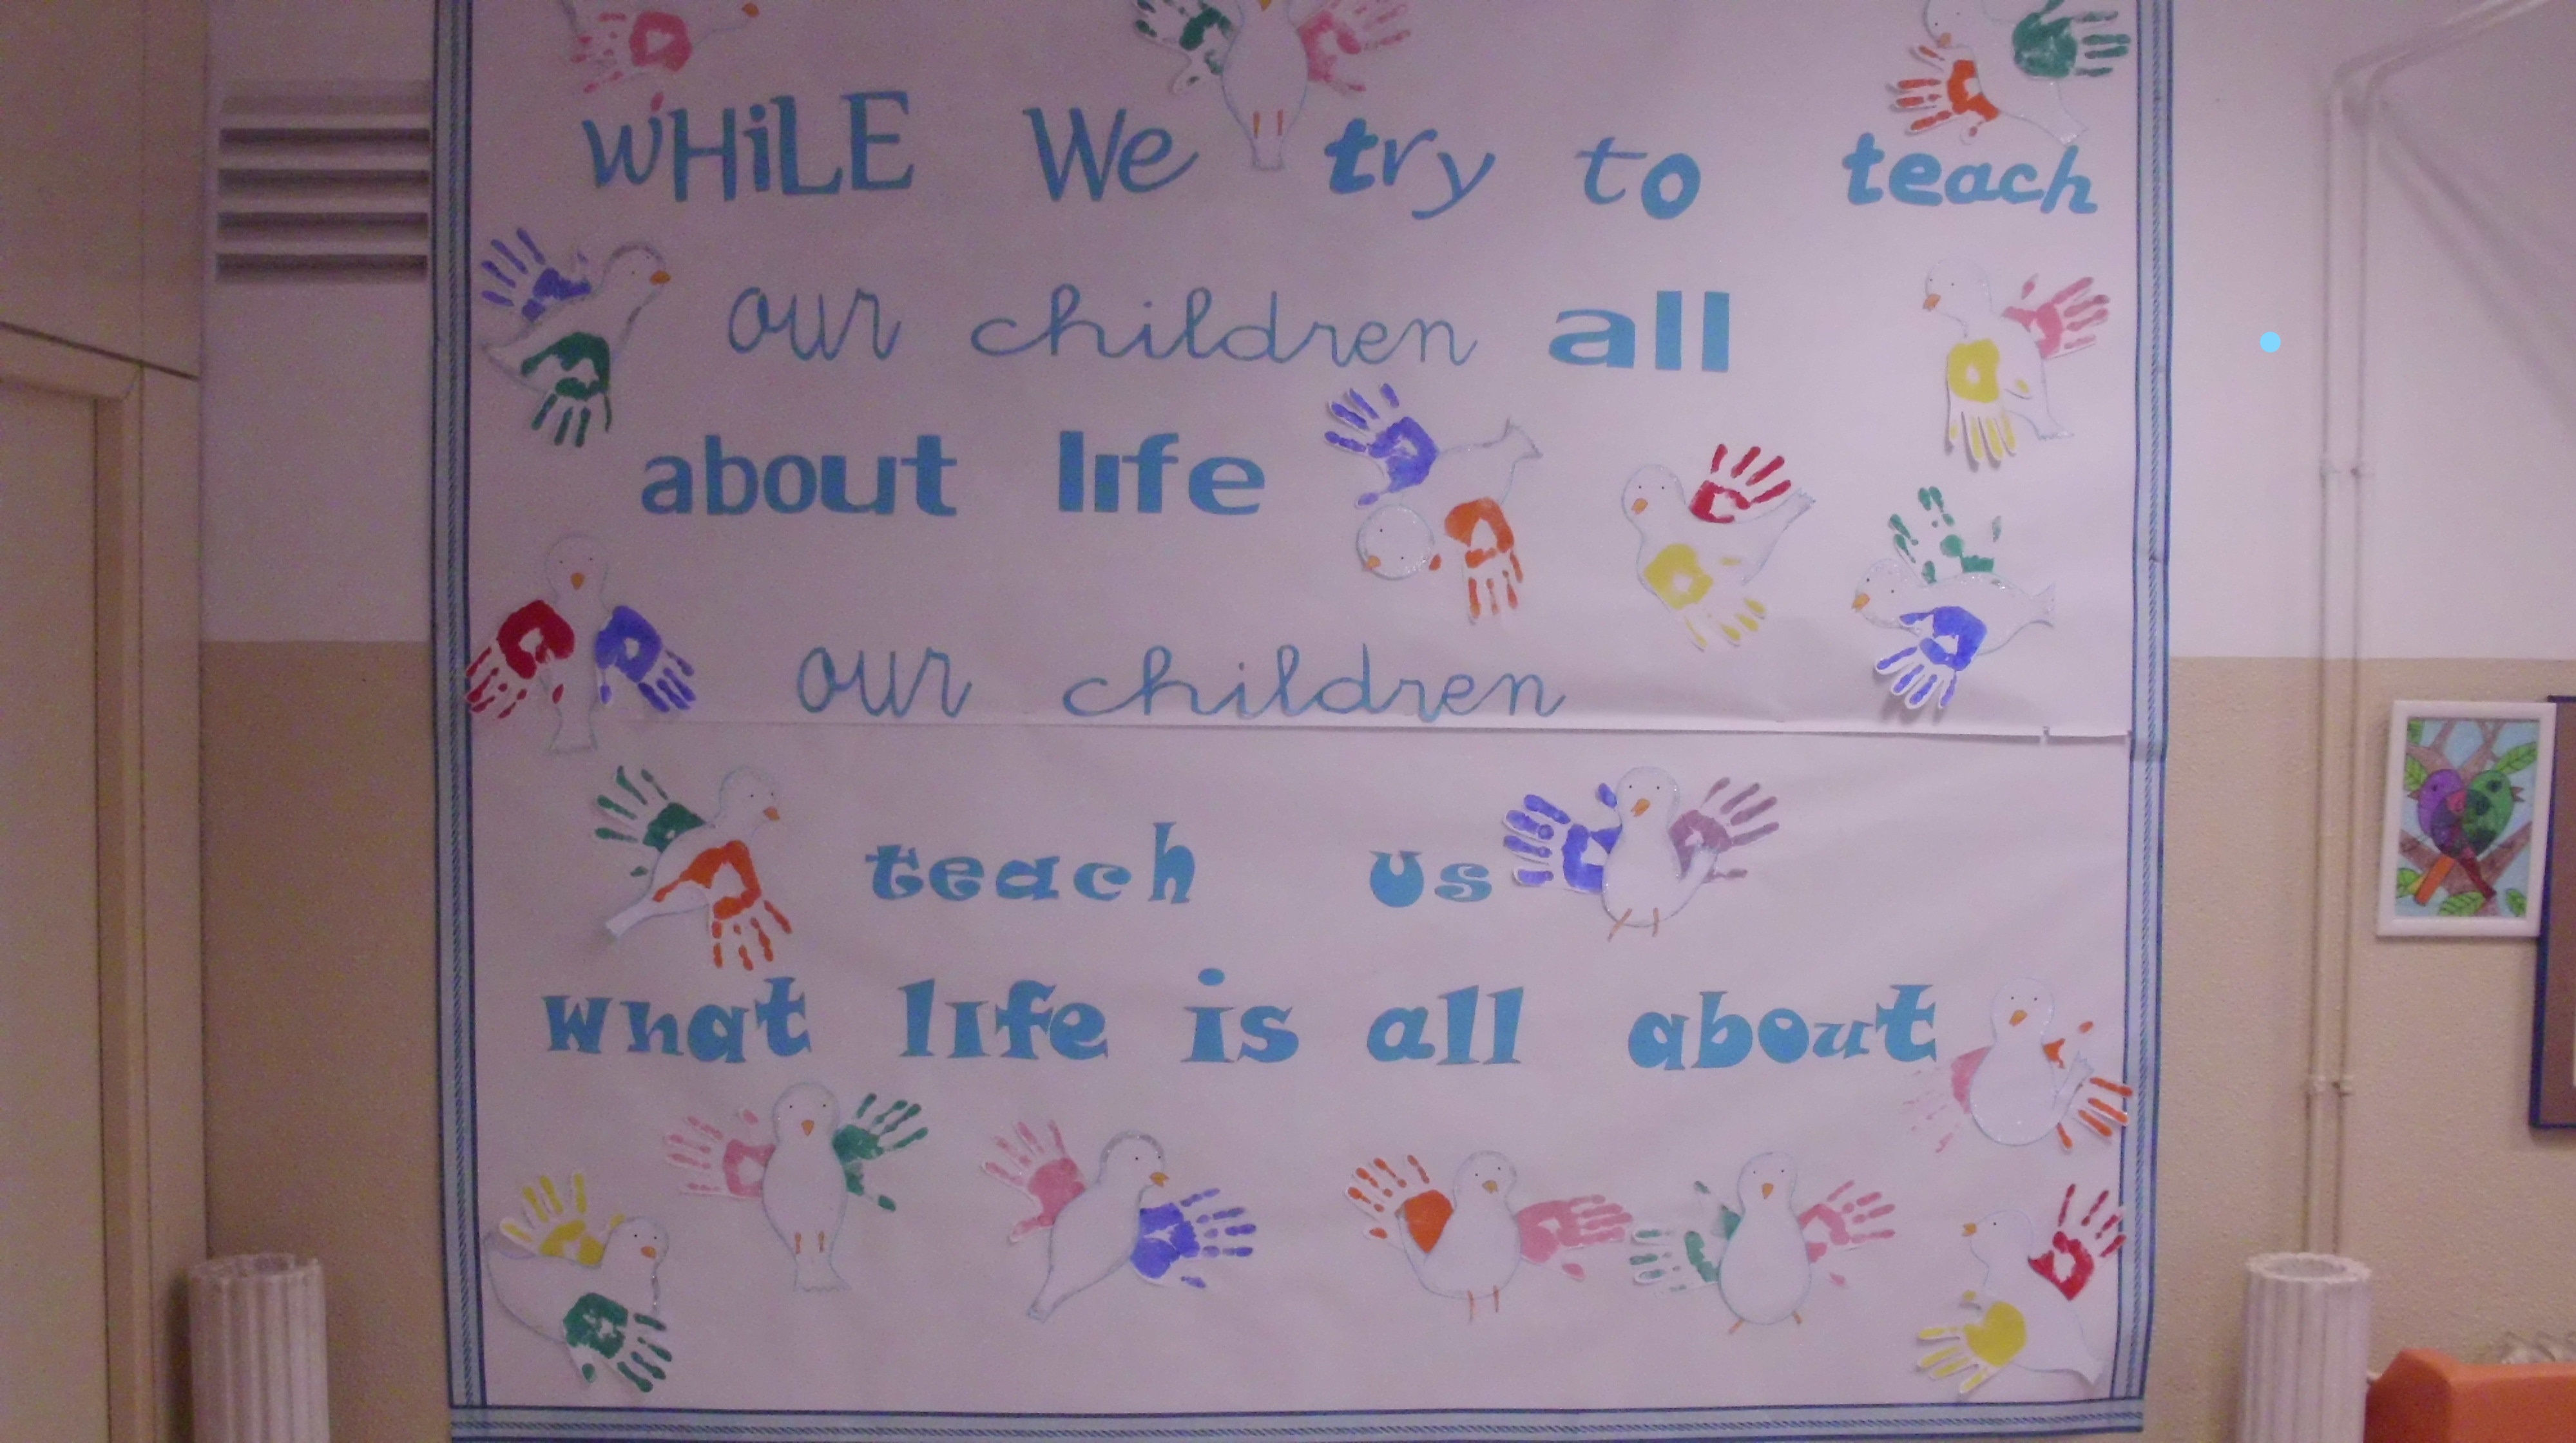 WHiLE We try to teach
our children all
about life
our children
teach us
what life is all about